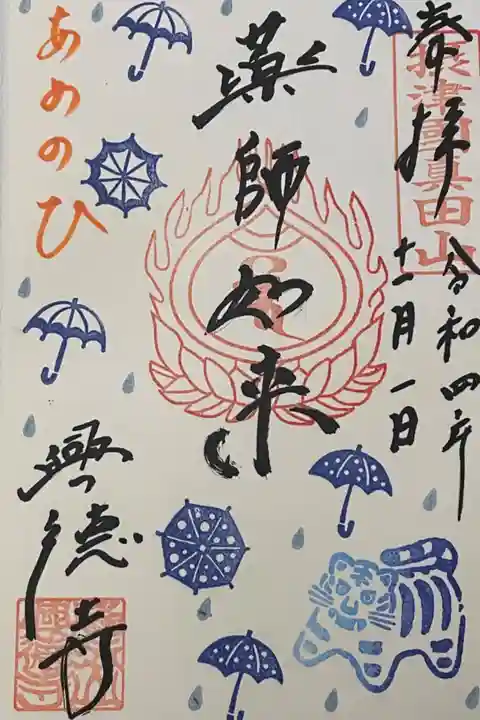 奉拝
摂津國真田山
令和四年
十一月一日
薬師如来
あめのひ
興徳寺